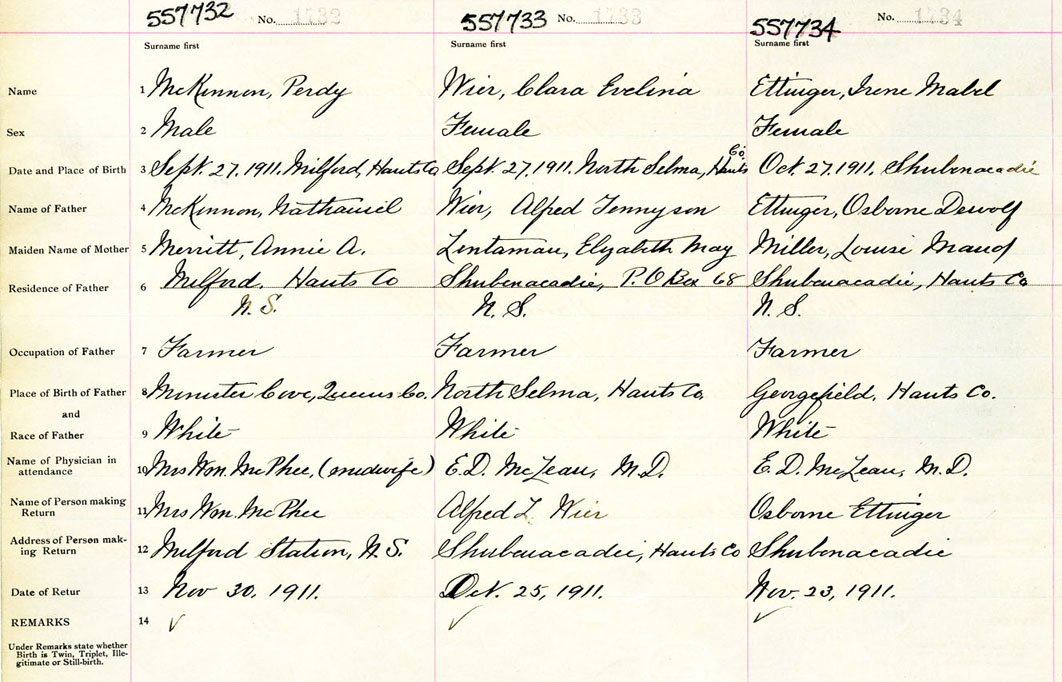 557732 No. 1732 557733 No. 1733 557734 No. 1734
Surname first Surname first Surname first
Name 1 McKinnon, Perdy Wier, Clara Evelina Ettinger, Irene Mabel
Sex 2 Male Female Female
Date and Place of Birth 3 Sept. 27. 1911. Milford, Hants Co Sept. 27, 1911. North Selma, Hants Co. Oct. 27. 1911, Shubenacadie
Name of Father 4 McKinnon, Nathaniel Wier, Alfred Tennyson Ettinger, Osborne Dewolf
Maiden Name of Mother 5 Merritt, Annie A. Elizabeth May Miller, Louise Maud
Residence of Father 6 Milford, Hants Co Shubenacadie, P.O Box 68 Shubenacadie, Hants Co
N. S. N. S. N. S.
Occupation of Father 7 Farmer Farmer Farmer
Place of Birth of Father 8 Cove, Queens Co. North Selma, Hants Co. Georgefield, Hants Co.
and
Race of Father 9 White White White
Name of Physician in attendance 10 Mrs Wm. McPhee, (midwife) E. D. McLean, M.D. E. D. McLean, M.D.
Name of Person making Return 11 Mrs Wm. McPhee Alfred T. Wier Osborne Ettinger
Address of Person mak-ing Return 12 Milford Station, N. S. Shubenacadie, Hants Co Shubenacadie
Date of Retur 13 Nov 30, 1911. 25, 1911. Nov. 23, 1911.
REMARKS 14
Under Remarks state whether
Birth is Twin, Triplet, Ille-
gitimate or Still-birth.